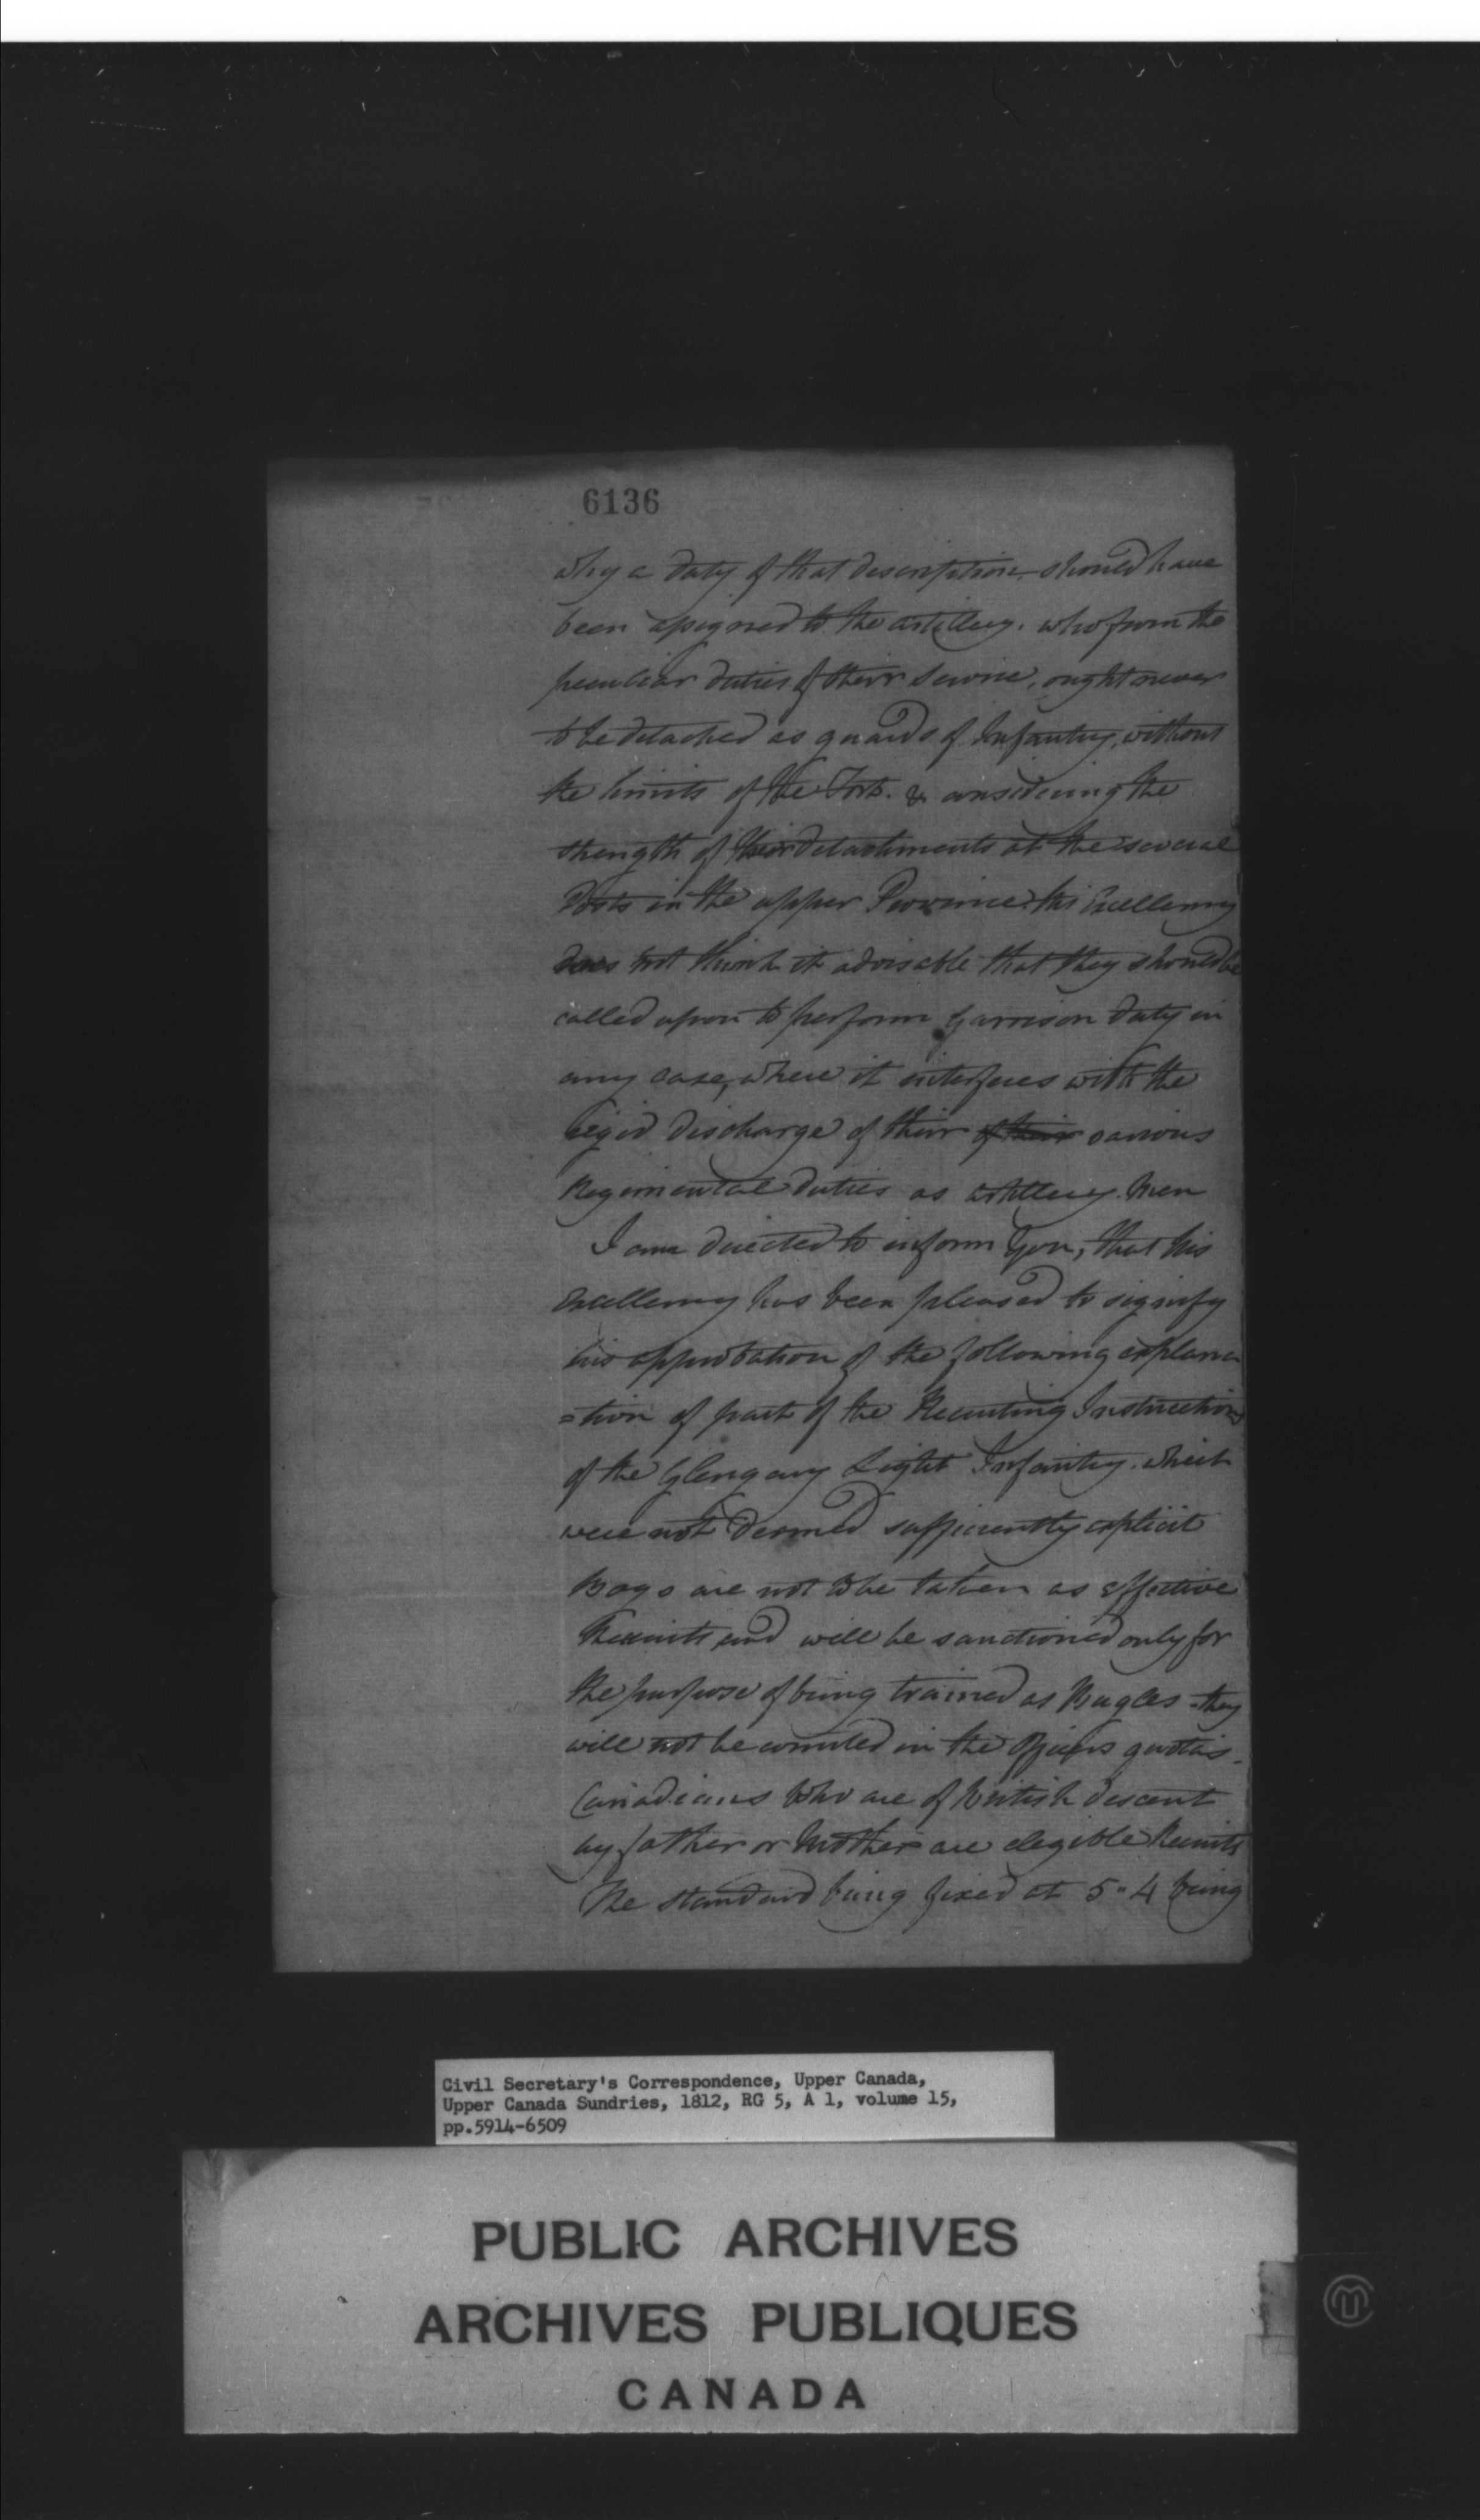 6136
why a duty of that description should have
been assigned to the artillery, who from the
peculiar duties of their service, ought never
to be detached as guards of Infantry, without
the limits of the Fort. & considering the
strength of their detachments at the several
Posts in the upper Province. his Excellency
does not think it advisable that they should be
called upon to perform Garrison duty in
any case, where it interferes with the
rigid discharge of their of their various
Regimental duties as artillery men
I am directed to inform You, that his
Excellency has been pleased to signify
his approbation of the following explana
=tion of part of the Recruiting Instructions
of the Glengary Light Infantry. which
were not deemed sufficiently explicit
Boys are not to be taken as effective
Recruits, and will be sanctioned only for
the purpose of being trained as Bugles - they
will not be counted in the Officers quotas -
Canadians who are of British descent
by father or Mother are elegible Recruits
The standard being fixed at 5" 4 being
Civil Secretary's Correspondence, Upper Canada,
Upper Canada Sundries, 1812, RG 5, A 1, volume 15,
pp.5914-6509
PUBLIC ARCHIVES
ARCHIVES PUBLIQUES
CANADA